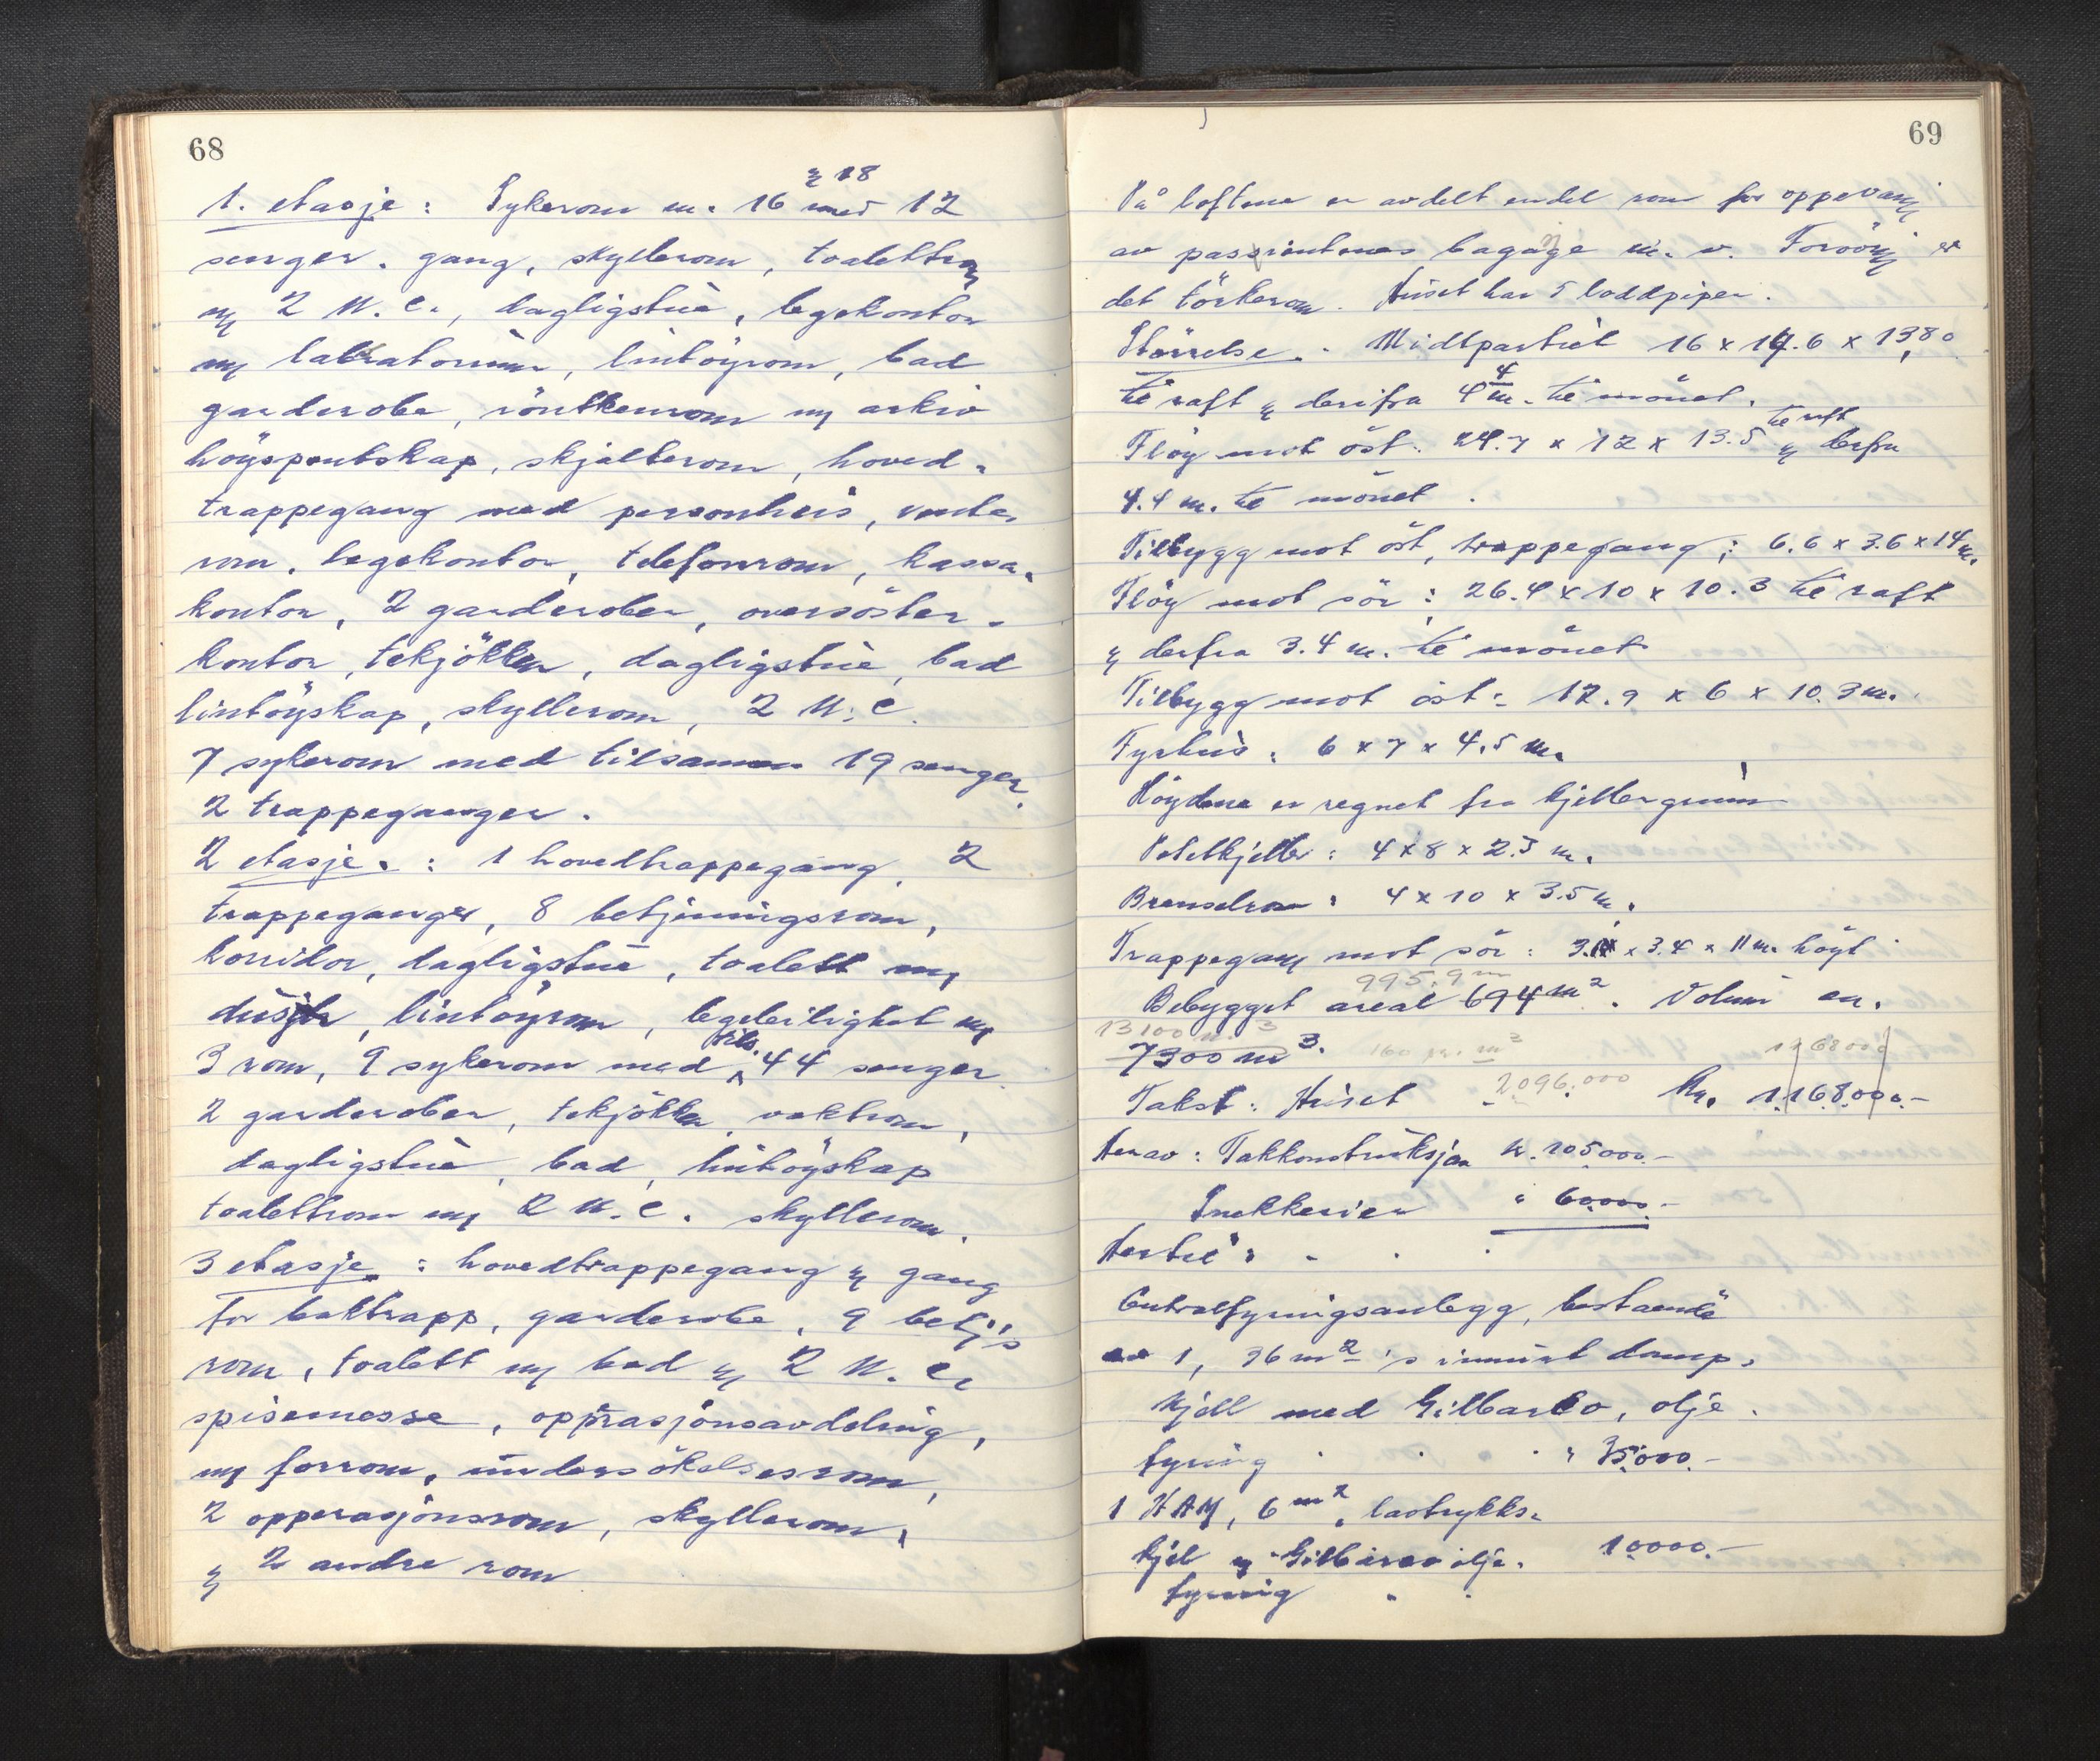 68
& 18
1. etasje : Sykerom m. 16 med 12
senger. gang, skyllerom, toalettrom
m/ 2 W.C., dagligstue, legekontor
m/ labratorium, lintöyrom, bad
garderobe, röntkenrom m/ arkiv
höyspentskap, skjalterom, hoved-
trappegang med personheis, vente-
rom, legekontor, telefonrom, kassa-
kontor, 2 garderober, oversöster-
kontor, tekjökken, dagligstue, bad
lintöyskap, skyllerom, 2 W.C.
7 sykerom med tilsamen 19 senger.
2 trappeganger.
2 etasje. : 1 hovedtrappegang, 2
trappeganger, 8 betjeningsrom,
korridor, dagligstue, toalett m/
dusj, lintöyrom, legeleilighet m/
3 rom, 9 sykerom med tils. 44 senger
2 garderober, tekjökken, vaktrom,
dagligstue, bad, lintöyskap
toalettrom m/ 2 W.C. skyllerom.
3 etasje : hovedtrappegang & gang
for baktrapp, garderobe, 9 betj's
rom, toalett m/ bad & 2 W.C.
spisemesse, opprasjonsavdeling,
m/ forrom, undersökelsesrom,
2 opperasjonsrom, skyllerom,
& 2 andre rom
69
På loftene er avdelt endel rom for oppevaring
av passientenes bagage m. v. Forövrig er
det törkerom. Huset har 5 loddpiper.
Störrelse. : Midtpartiet 16 x 14.6 x 13,80
til raft & derifra 4 4 m. til mönet.
Flöy mot öst: 24.7 x 12 x 13.5 til raft & derfra
4.4 m. til mönet.
Tilbygg mot öst, trappegang: 6.6 x 3.6 x 14 m.
Flöy mot sör : 26.4 x 10 x 10.3 til raft
& derfra 3.4 m. til mönet
Tilbygg mot öst: 12.9 x 6 x 10.3 m.
Fyrhus : 6 x 7 x 4.5 m.
Höydene er regnet fra kjellergrunn
Potetkjeller : 4 x 8 x 2.5 m.
Brenselrom : 4 x 10 x 3.5 m.
Trappegang mot sör : x 3.4 x 11 m. höyt
995.9 m
Bebygget areal 694 m². Volum en.
13100 m3
7300 m³. 160 pr. m3 1168000
Takst: Huset 2.096.000 Kr. 1.168.000.-
Herav : Takkonstruksjon kr. 105.000.-
Snekkerier " 60.000.-
Hertil : - . .
Centralfyringsanlegg, bestaende
av 1, 36 m² 's innmurt damp-
kjell med Gilbarco, olje.
fyring . . . " 35.000.-
1 HAM, 6 m², lavtrykks-
kjel m/ Gilbarco olje- 10.000.-
fyring . .